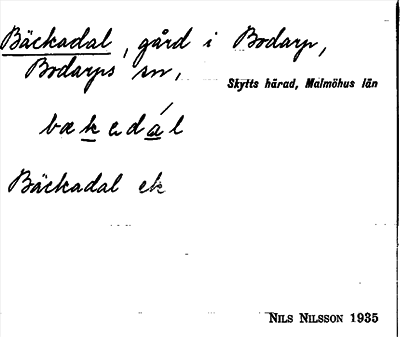 Bäckadal, gård i Bodarp,
Bodarps sn,
Skytts härad, Malmöhus län
bækadál
Bäckadal ek
NILS NILSSON 1935